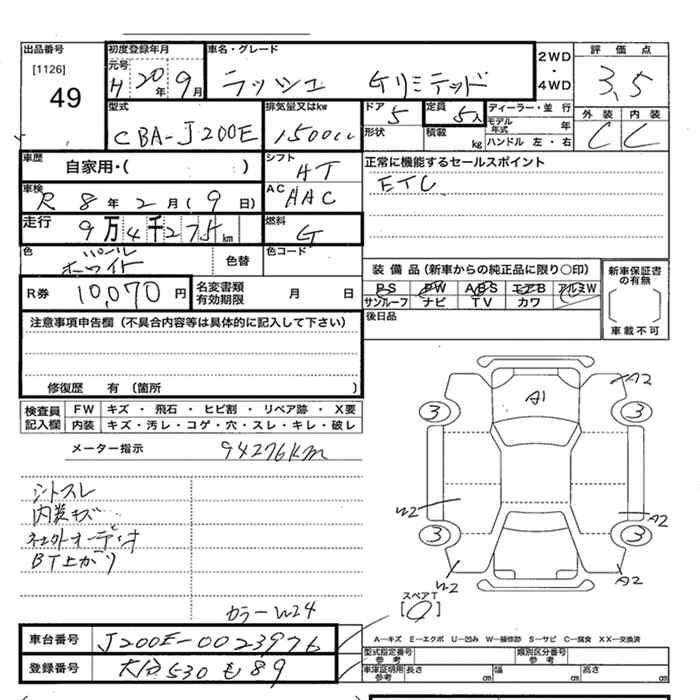 出品番号
[1126]
49
初度登録年月
元号
H 20年 9月
車名・グレード
ラッシュ Gリミテッド
2WD
・
4WD
評価点
3.5
型式
CBA-J200E
排気量又はkw
1500cc
ドア
5
定員
5人
ディーラー・並 行
モデル年式 年
外装 内装
C C
形状
積載 kg
ハンドル 左・右
車歴
自家用・( )
シフト
AT
正常に機能するセールスポイント
ETC
車検
R 8年 2月(9日)
AC
AAC
走行
9万4千275km
燃料
G
色
パール
ホワイト
色替
色コード
R券 10,070円
名変書類
有効期限
月 日
装備品(新車からの純正品に限り○印)
PS PW ABS エアB アルミW
サンルーフ ナビ TV カワ
新車保証書
の有無
車載不可
後日品
注意事項申告欄(不具合内容等は具体的に記入して下さい)
修復歴 有(箇所 )
検査員
記入欄
FW キズ・飛石・ヒビ割・リペア跡・X要
内装 キズ・汚レ・コゲ・穴・スレ・キレ・破レ
メーター指示 94276km
シートスレ
内装キズ
社外オーディオ
BT上がり
カラーW24
A1
A2
3
3
W2
A2
3
3
W2
A2
スペアT
[ ]
A―キズ E―エクボ U―凹み W―補修跡 S―サビ C―腐食 XX―交換済
車台番号 J200E-0023976
登録番号 大分530も89
型式指定番号
参考
類別区分番号
参考
車庫証明用
参考
長さ cm 幅 cm 高さ cm